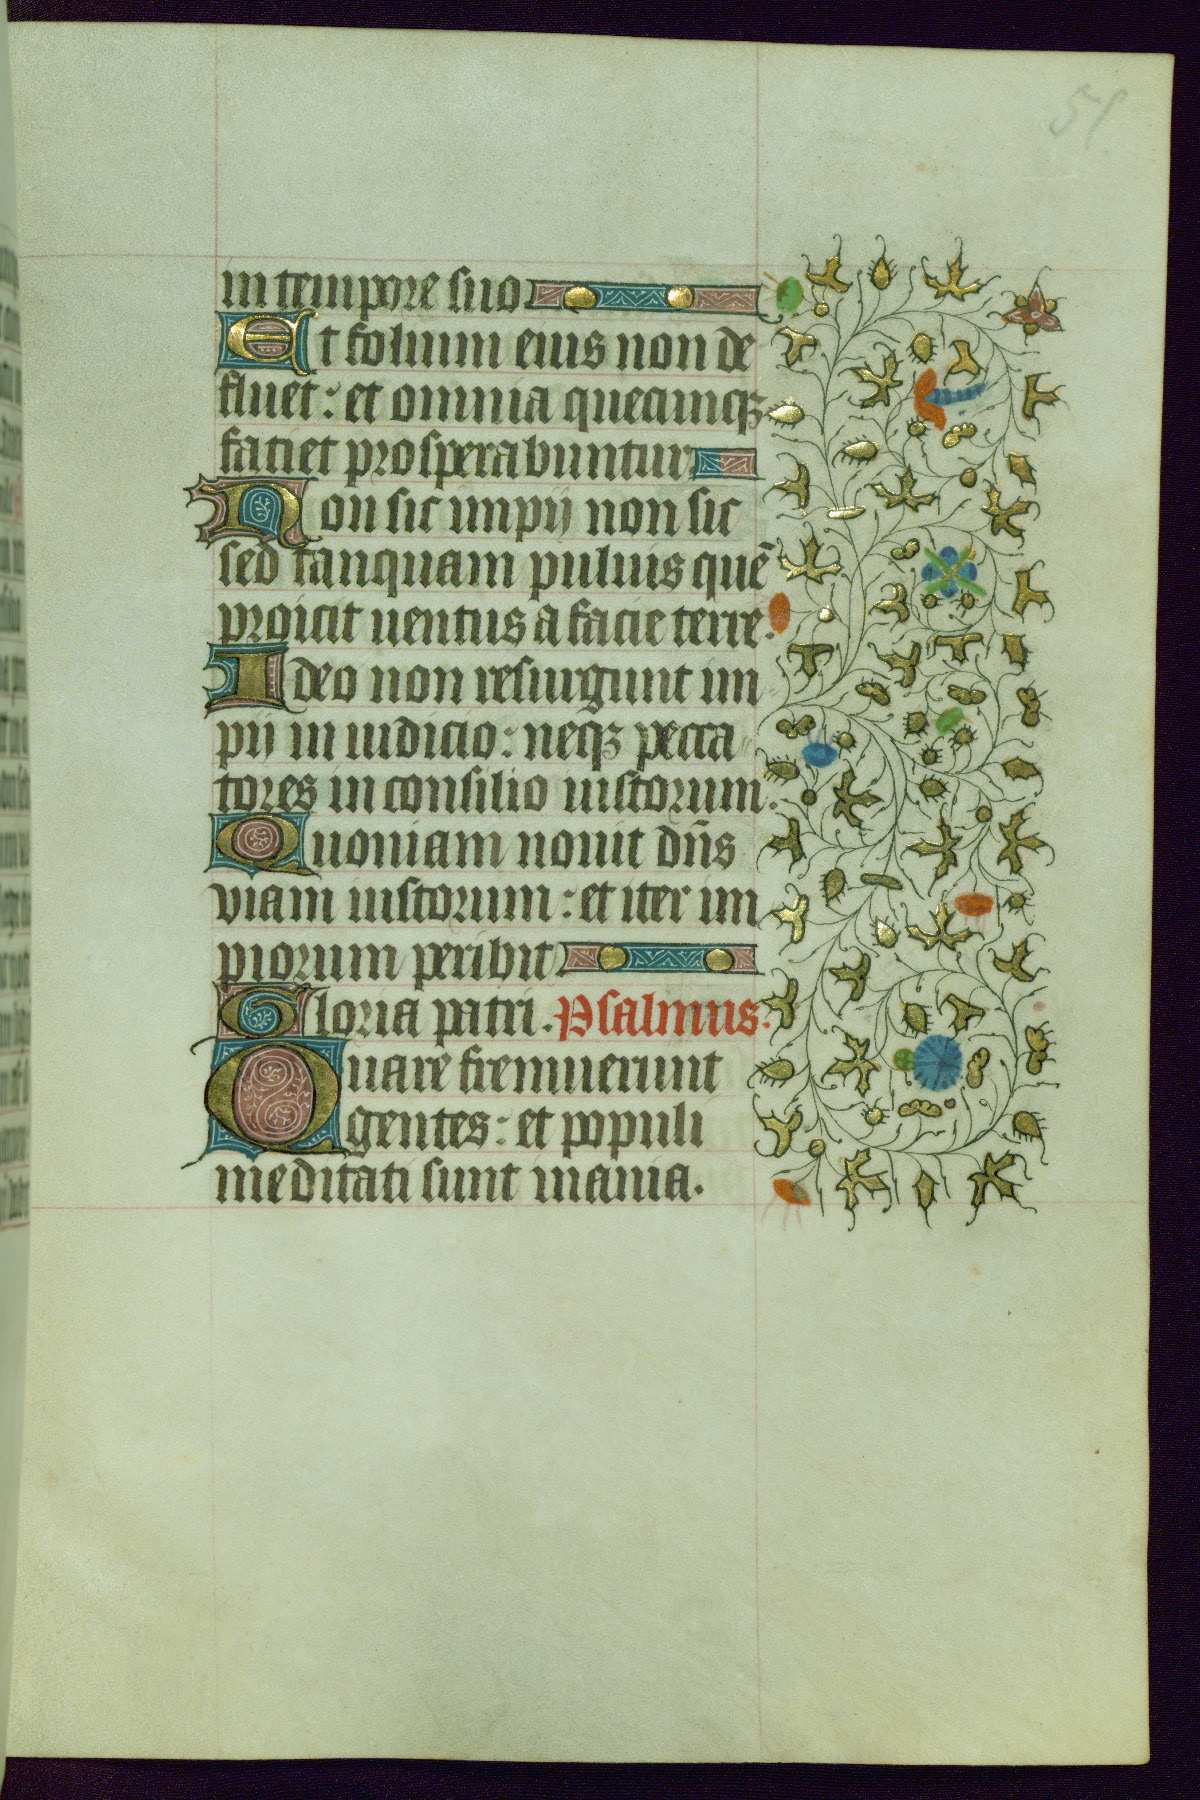 51
in tempore suo
Et folium eius non de
fluet: et omnia quecumqꝫ
faciet prosperabuntur
Non sic impij non sic
sed tanquam puluis quē
proicit uentus a facie terre.
Ideo non resurgunt im
pij in iudicio: neqꝫ pecca
tores in consilio iustorum.
Quoniam nouit dn̄s
viam iustorum: et iter im
piorum peribit
Gloria patri. Psalmus.
Quare fremuerunt
gentes: et populi
meditati sunt inania.